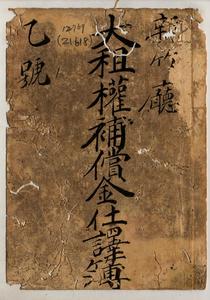 新竹廳
大租權補償金仕譯簿
乙號
12771
(21618)